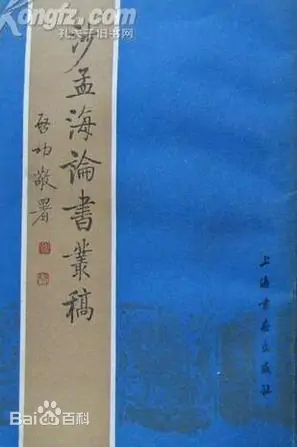 Kongfz.com
孔夫子旧书网
沙孟海論書叢稿
啓功敬署
上海書画出版社
Bai百科